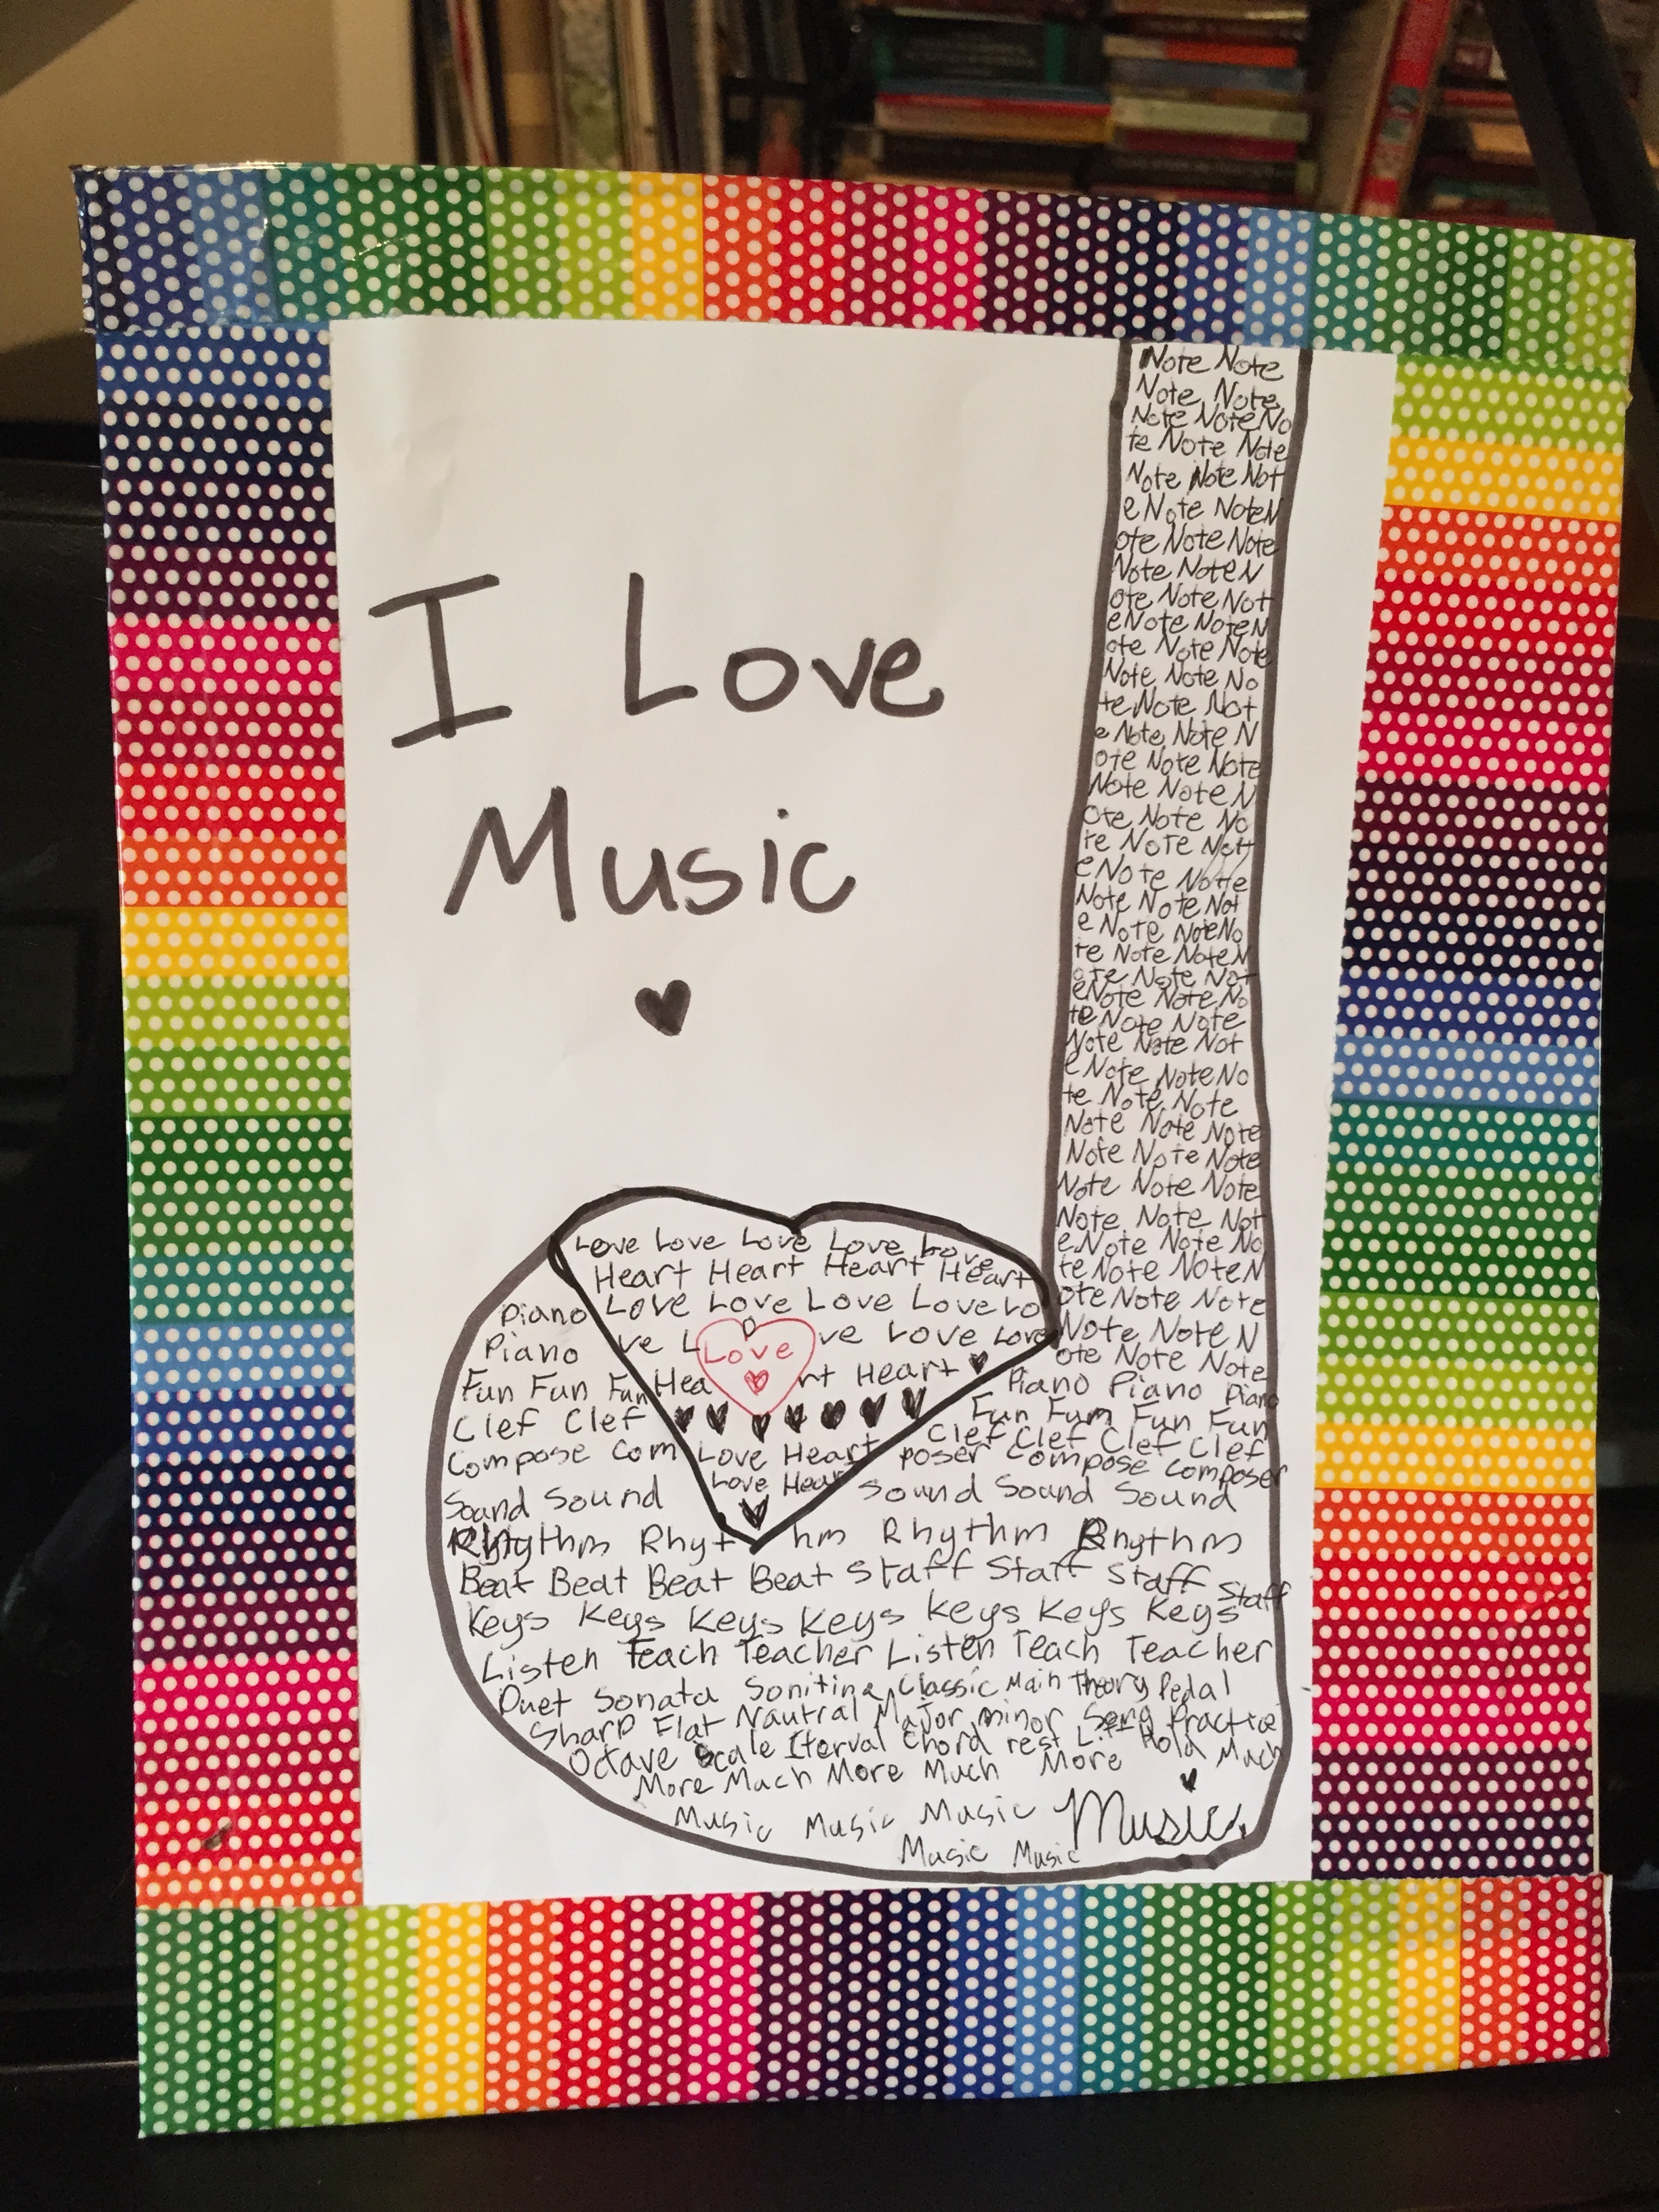 I Love
Music
Note Note
Note Note
Note Note No
te Note Note
Note Note Not
e Note Note N
ote Note Note
Note Note N
ote Note Not
e Note Note N
ote Note Note
Note Note No
te Note Not
e Note Note N
ote Note Note
Note Note N
ote Note No
te Note Not
e Note Note
Note Note Not
e Note Note No
te Note Note N
ote Note Not
e Note Note No
te Note Note
Note Note Not
e Note Note No
te Note Note
Note Note Note
Note Note Note
Note Note Note
Note Note Not
e Note Note No
te Note Note N
ote Note Note
Note Note N
ote Note Note
Love Love Love Love Love
Heart Heart Heart Heart
Love Love Love Love Lo
ve L ve Love Love
Love
Hea rt Heart
Love Heart
Love Hear
Piano
Piano
Piano Piano Piano
Fun Fun Fun Fun Fun Fun Fun
Clef Clef Clef Clef Clef Clef
Compose Com poser Compose Composer
Sound Sound Sound Sound Sound
Rhythm Rhyt hm Rhythm Rhythm
Beat Beat Beat Beat Staff Staff Staff Staff
Keys Keys Keys Keys Keys Keys Keys
Listen Teach Teacher Listen Teach Teacher
Duet Sonata Sonitina Classic Main Theory Pedal
Sharp Flat Nautral Major minor Song Practice
Octave Scale Iterval Chord rest Hold Much
More Much More Much More
Music Music Music Music
Music Music